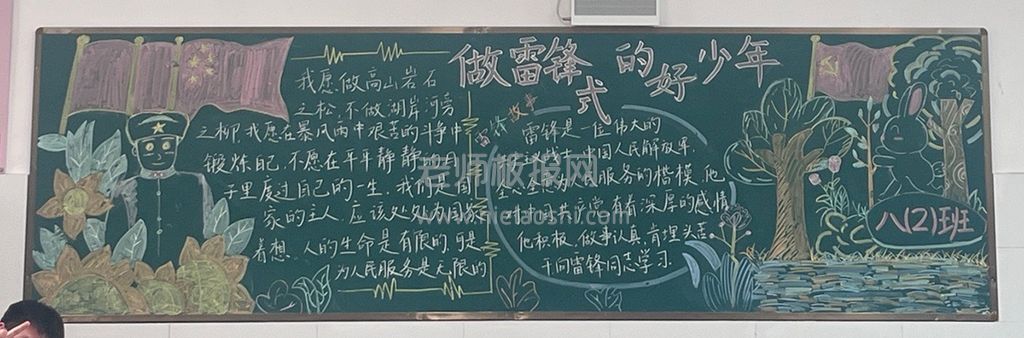 做雷锋式的好少年
我愿做高山岩石
之松,不做湖岸河旁
之柳,我愿在暴风雨中艰苦的斗争中
锻炼自己,不愿在平平静静的日
子里度过自己的一生,我们是国
家的主人,应该处处为国家
着想,人的生命是有限的,可是
为人民服务是无限的
雷锋故事
雷锋是一位伟大的
中国人民解放军,
全心全意为人民服务的楷模,他
对中国共产党有着深厚的感情
他积极,做事认真,肯埋头苦
干向雷锋同志学习
八(2)班
老师板报网
www.helaoshi.com